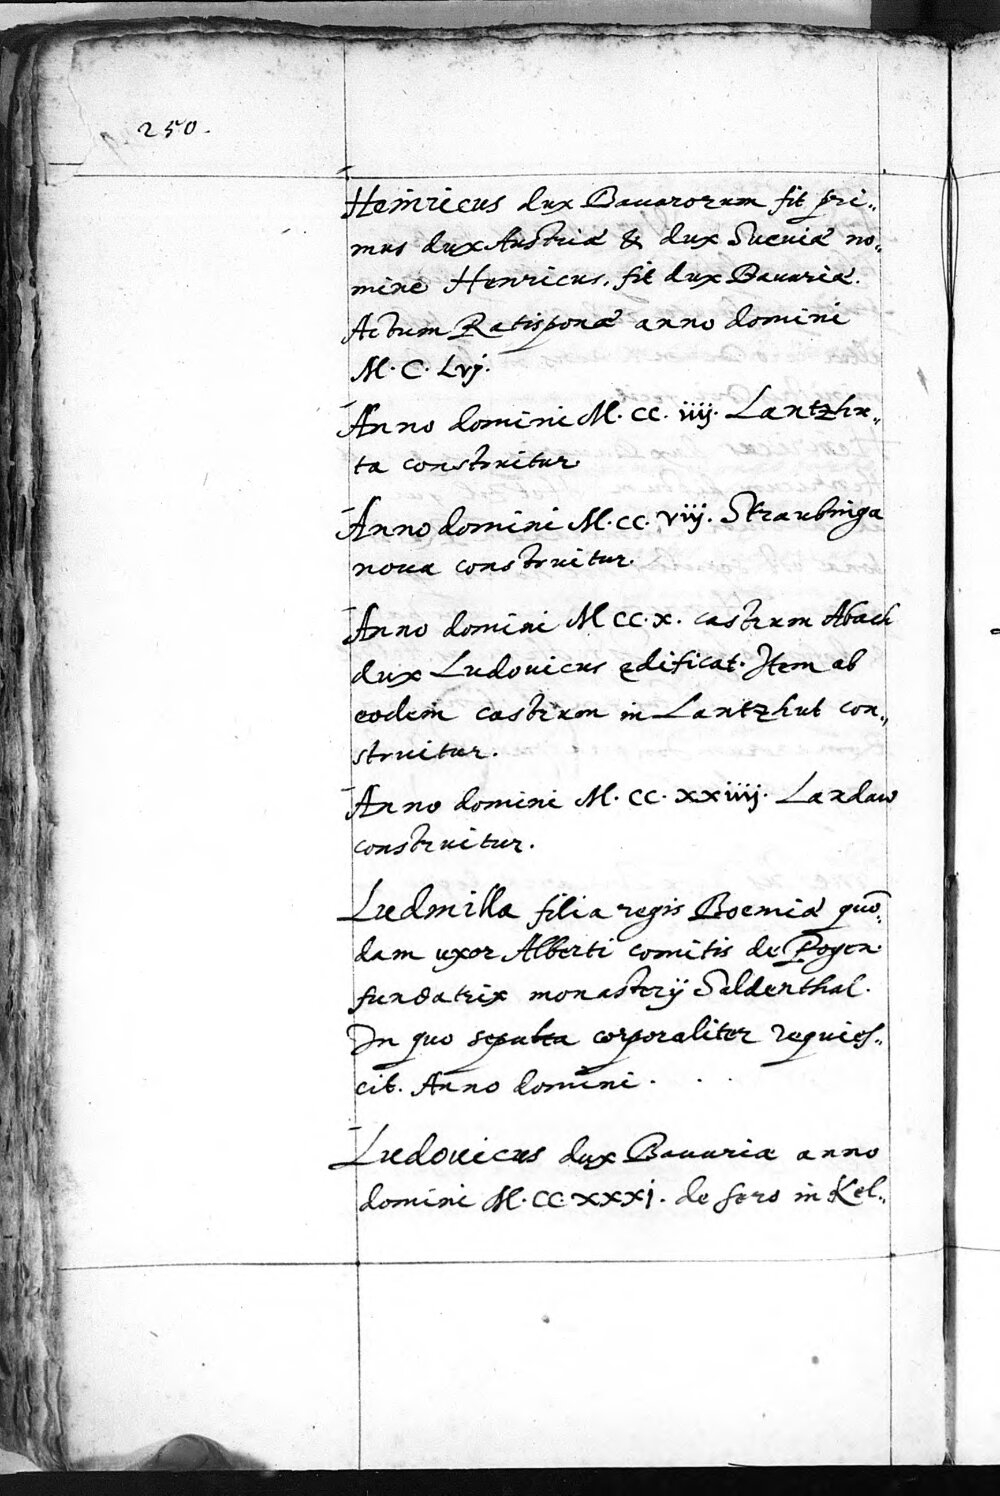 250.
Heinricus dux Bauarorum fit pri„
mus dux Austriæ & dux Sueuiæ no„
mine Henricus, fit dux Bauariæ.
Actum Ratisponæ anno domini
M. C. Lvj.
Anno domini M. CC. iiij. Lantzhu„
ta construitur
Anno domini M. CC. viij. Straubinga
noua construitur.
Anno domini M CC. x. castrum Abach
dux Ludouicus edificat. Item ab
eodem castrum in Lantzhut con„
struitur.
Anno domini M. CC. xxiiij. Landaw
construitur.
Ludmilla filia regis Boemiæ quō„
dam uxor Alberti comitis de Pogen
fundatrix monasterij Seldenthal.
In quo sepulta corporaliter requies„
cit. Anno domini . . .
Ludouicus dux Bauariæ anno
domini M. CC xxxj. de sero in Kel„